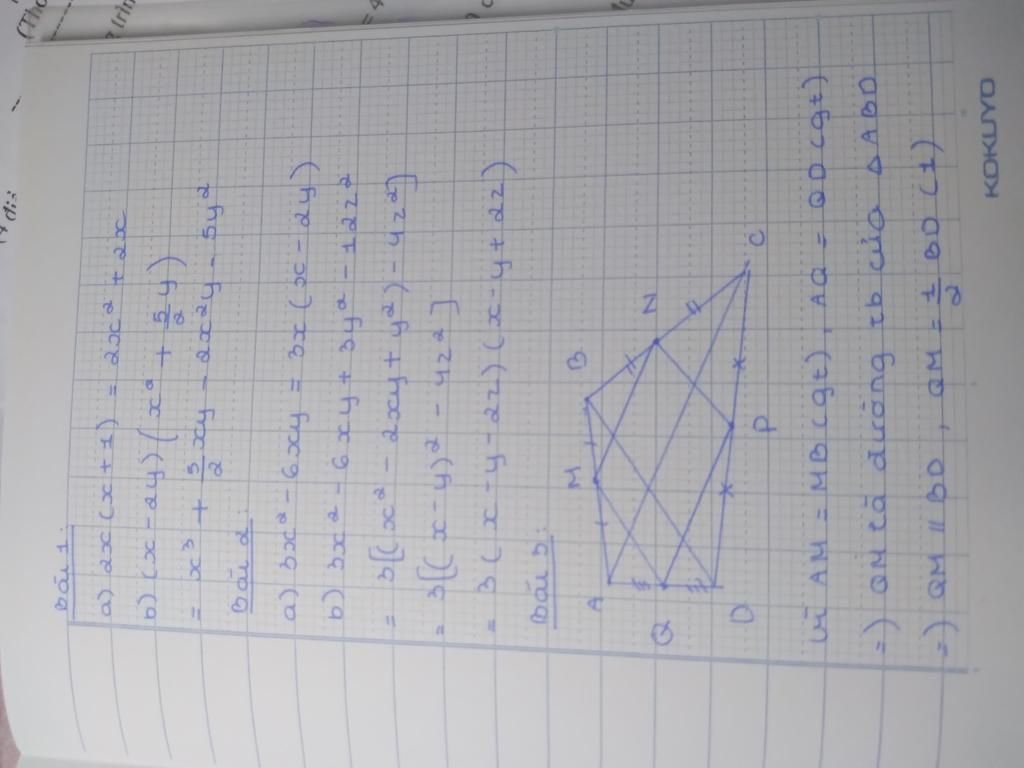 Bài 1:
a) 2x(x+1) = 2x² + 2x
b) (x-2y)(x² + 5/2 y)
= x³ + 5/2 xy - 2x²y - 5y²
Bài 2:
a) 3x² - 6xy = 3x(x-2y)
b) 3x² - 6xy + 3y² - 12z²
= 3[(x² - 2xy + y²) - 4z²]
= 3[(x-y)² - 4z²]
= 3(x-y-2z)(x-y+2z)
Bài 3:
A M B N C
Q D P
Vì AM = MB (gt), AQ = QD (gt)
=) QM là đường tb của △ABD
=) QM // BD, QM = 1/2 BD (1)
KOKUYO